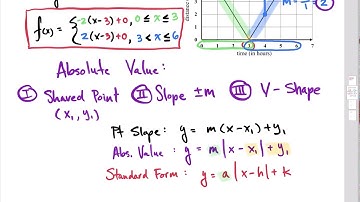 f(x) = { -2(x-3)+0, 0 ≤ x ≤ 3
2(x-3)+0, 3 < x ≤ 6
m = 2/1 = 2
0 1 2 3 4 5 6 7
time (in hours)
Absolute Value:
I Shared Point II Slope ±m III V-Shape
(x₁, y₁)
Pt Slope: y = m(x-x₁)+y₁
Abs. Value: y = m|x-x₁|+y₁
Standard Form: y = a|x-h|+k